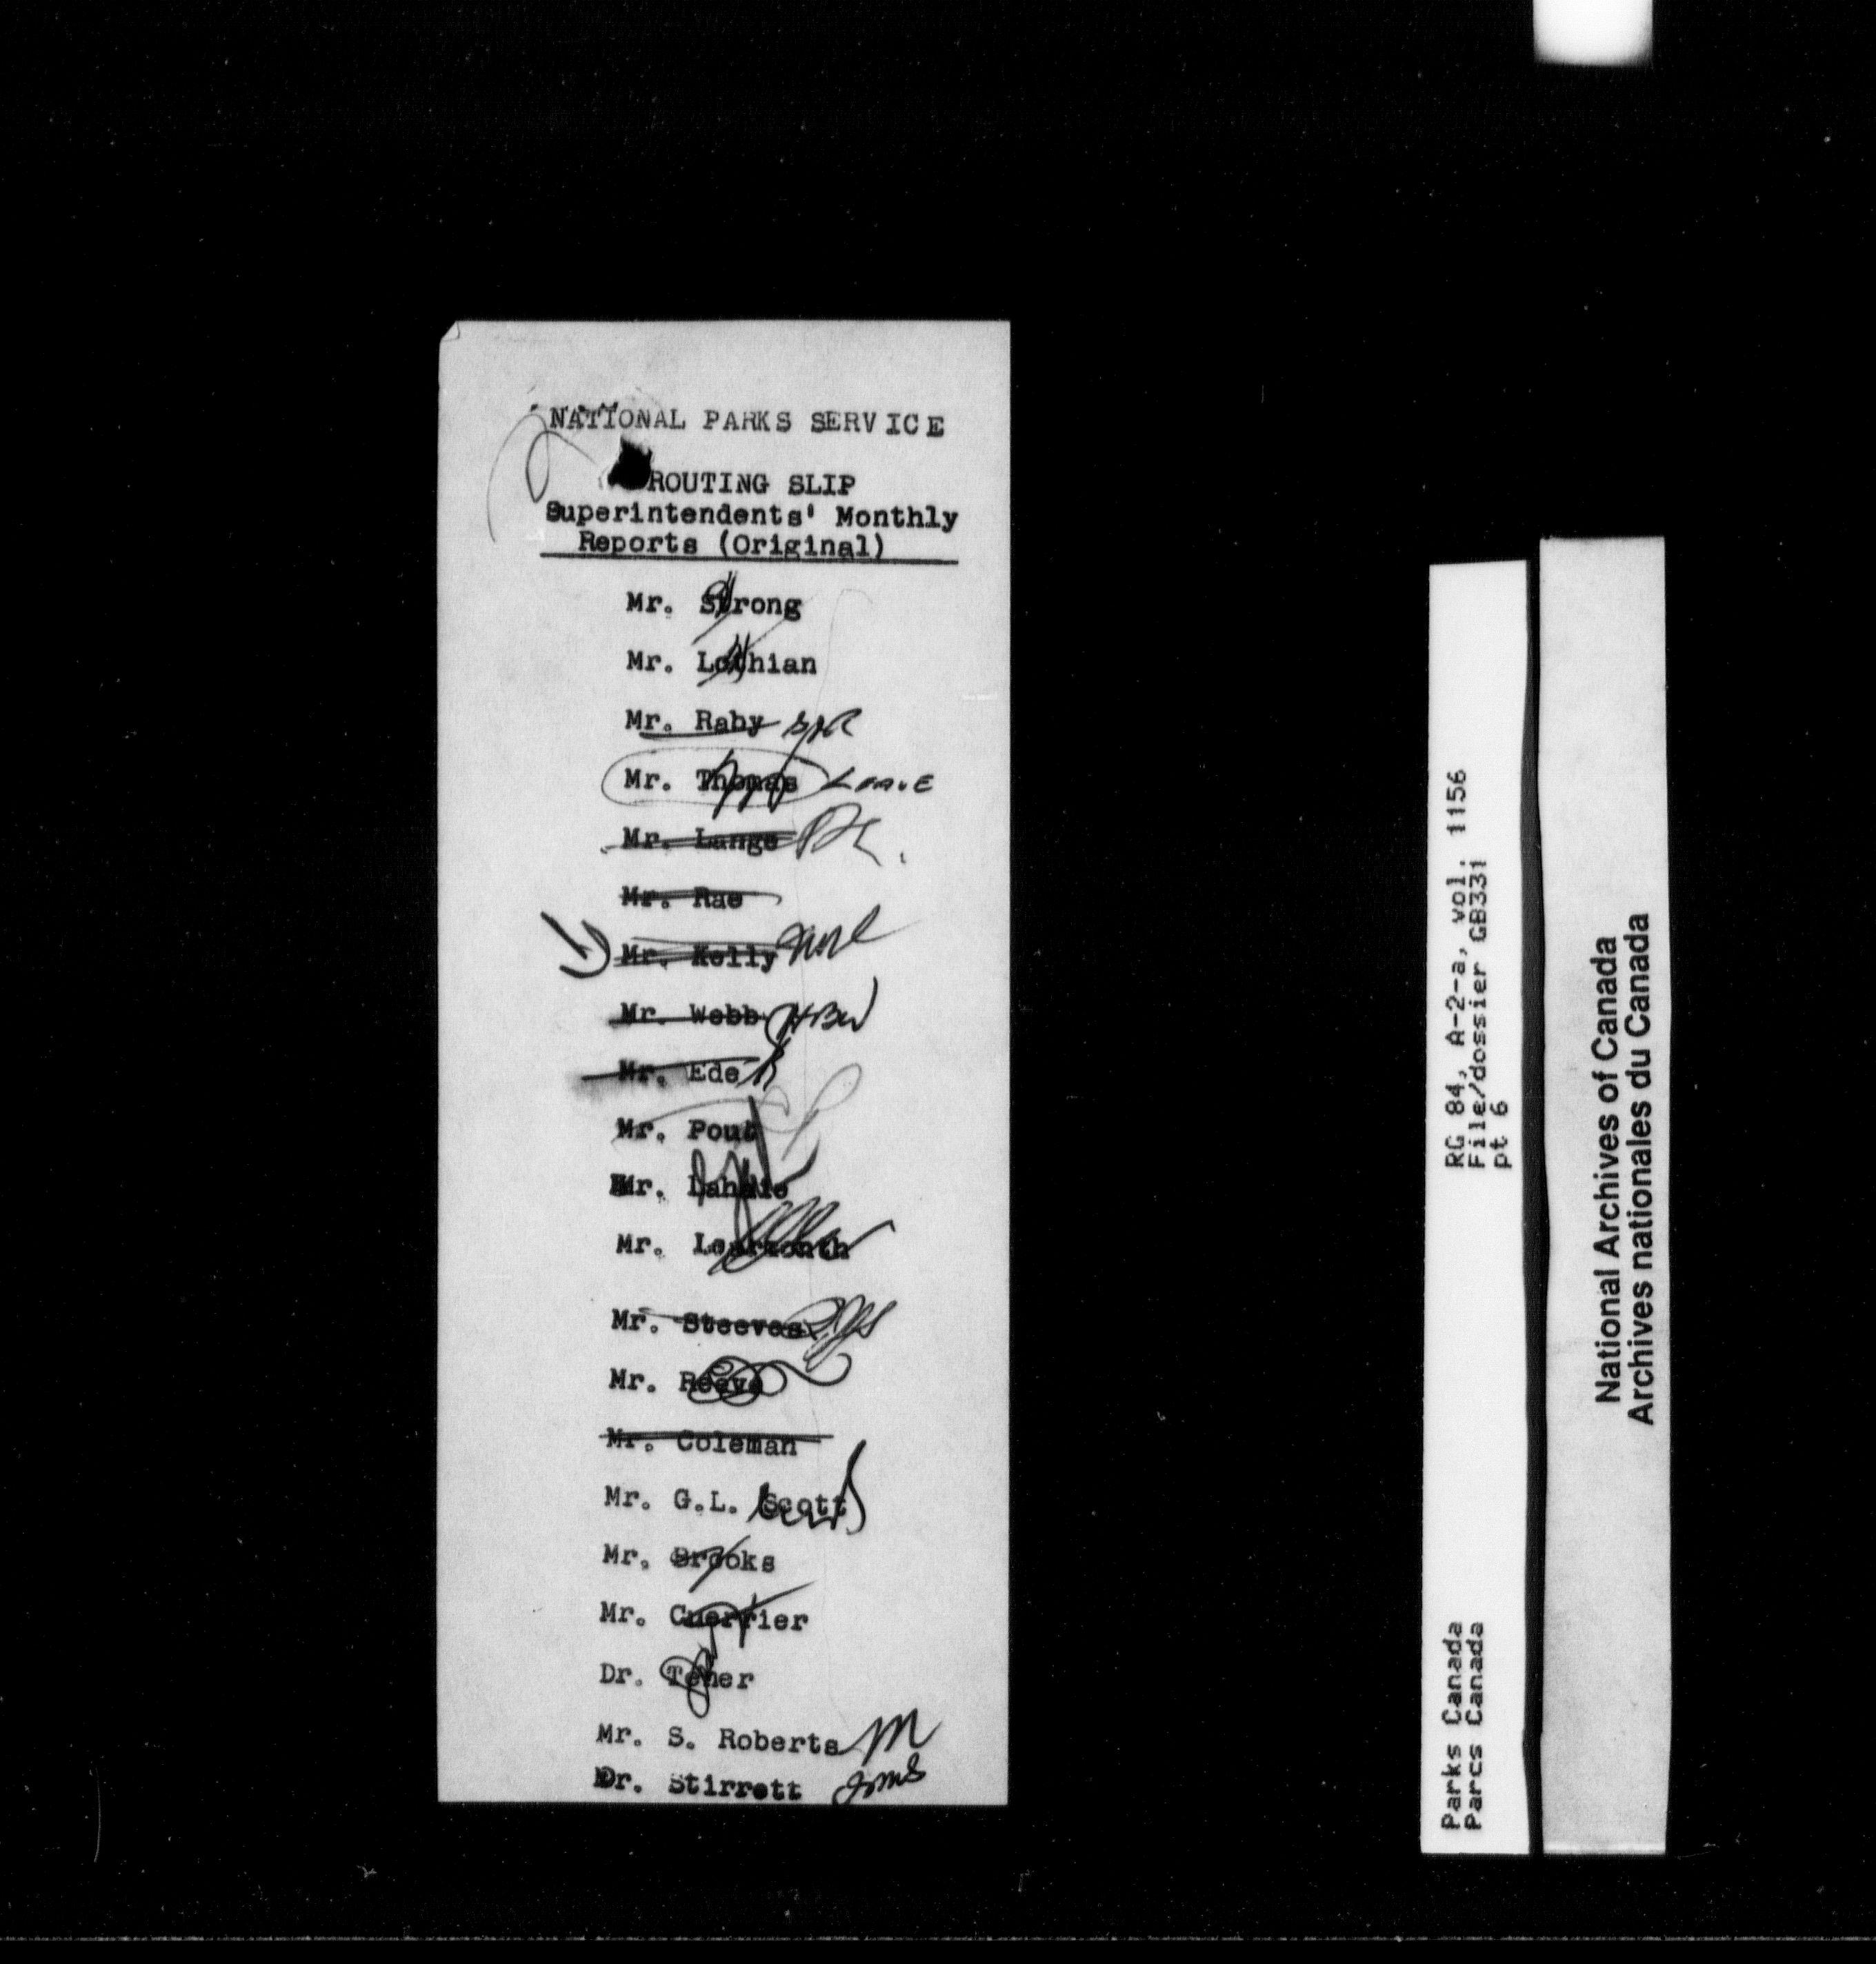 NATIONAL PARKS SERVICE
ROUTING SLIP
Superintendents' Monthly
Reports (Original)
Mr. Strong
Mr. Lothian
Mr. Raby
Mr. Thomas LEAVE
Mr. Lange
Mr. Rae
Mr. Kelly
Mr. Webb HBW
Mr. Ede
Mr. Pout
Mr. Lahaie
Mr. Learmonth
Mr. Steeves
Mr. Reeve
Mr. Coleman
Mr. G.L. Scott
Mr. Brooks
Mr. Cuerrier
Dr. Tener
Mr. S. Roberts
Dr. Stirrett
RG 84, A-2-a, vol. 1156
File/dossier GB331
pt 6
Parks Canada
Parcs Canada
National Archives of Canada
Archives nationales du Canada